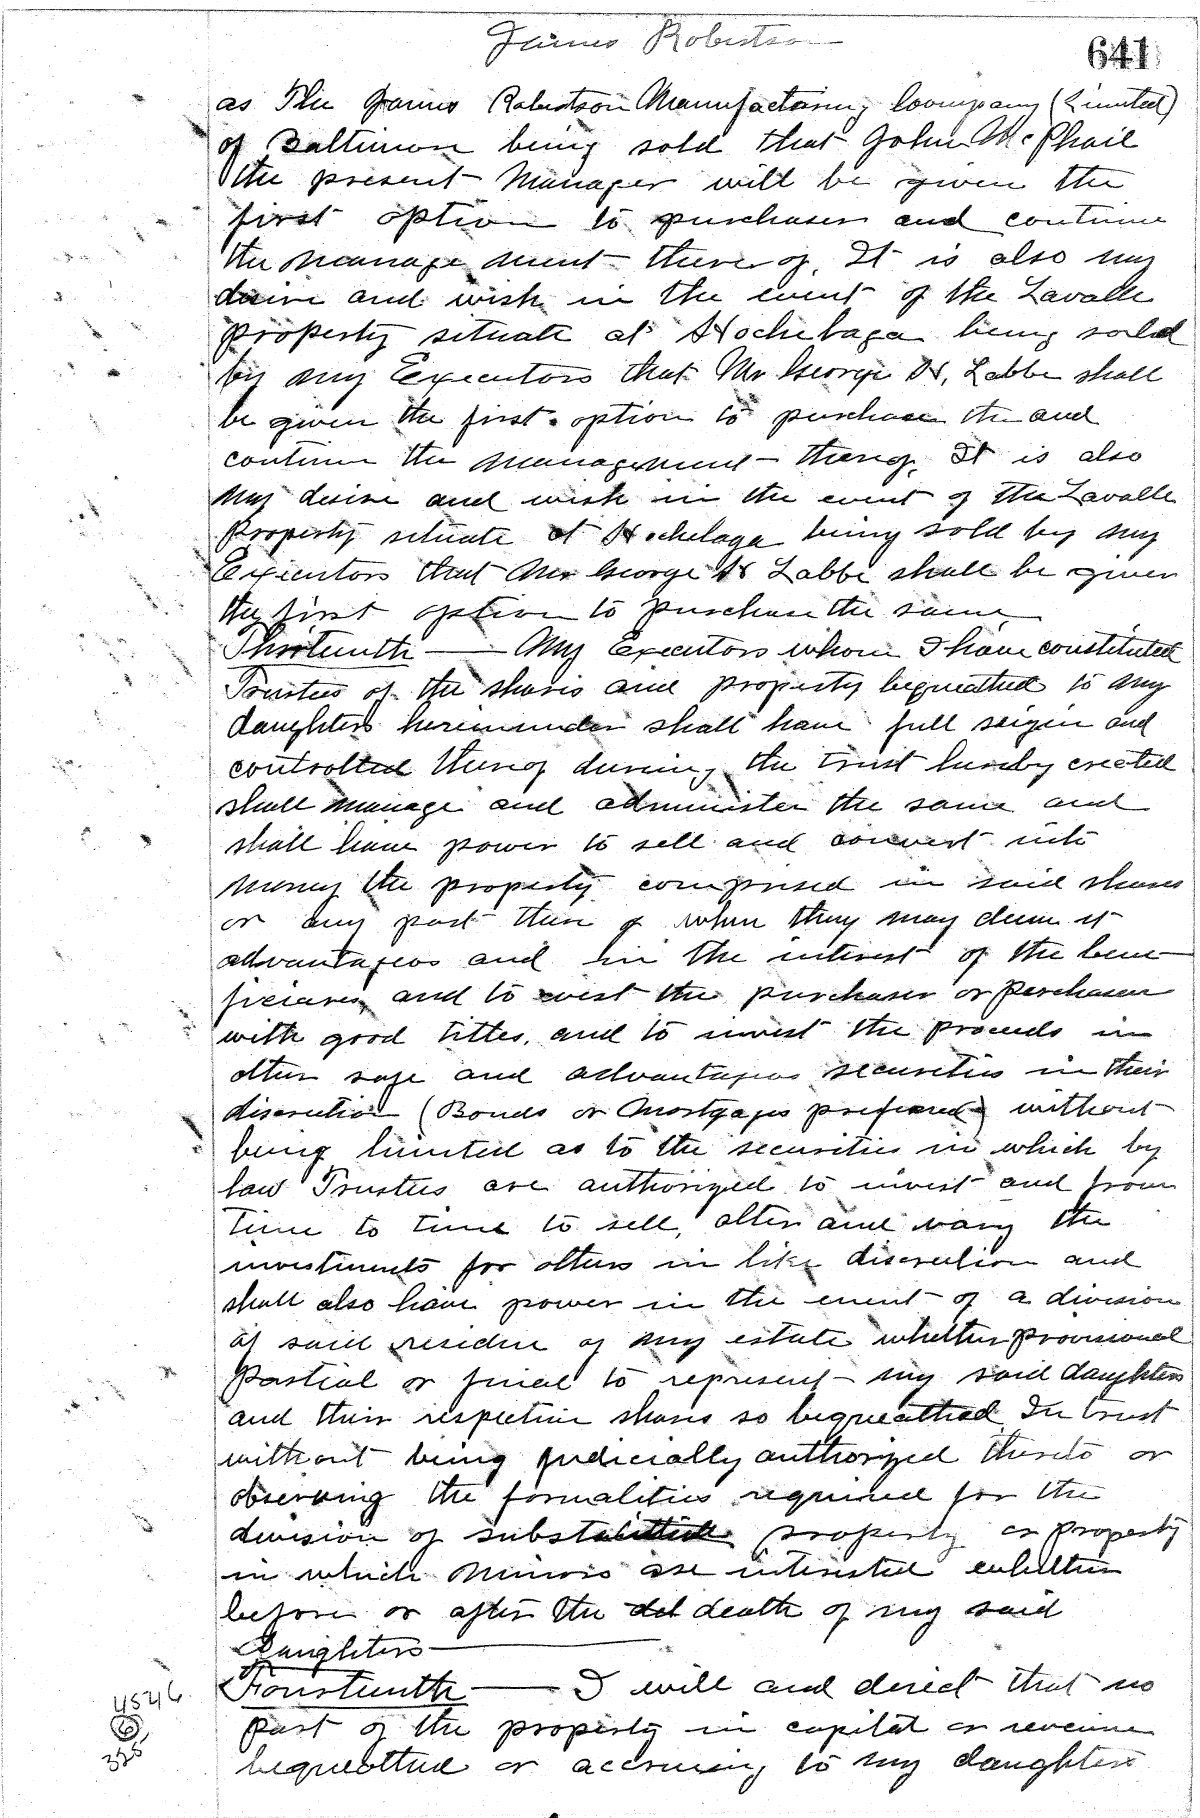 James Robertson
641
as The James Robertson Manufacturing Company (Limited)
of Baltimore being sold that John McPhail
the present Manager will be given the
first option to purchaser and continue
the manage ment there of. It is also my
desire and wish in the event of the Lavalle
property situate at Hochelaga being sold
by my Executors that Mr George H. Labbe shall
be given the first option to purchase the and
continue the management thereof. It is also
my desire and wish in the event of the Lavalle
Property situate at Hochelaga being sold by my
Executors that Mr George H Labbe shall be given
the first option to purchase the same
Thirteenth — My Executors whom I have constituted
Trustees of the shares and property bequeathed to my
daughters hereinunder shall have full seizin and
controlled thereof during the trust hereby created
shall manage and administer the same and
shall have power to sell and convert into
money the property comprised in said shares
or any part there of when they may deem it
advantageos and in the interest of the bene
ficiares, and to vest the purchaser or purchaser
with good titles, and to invest the proceeds in
other safe and advantageous securities in their
discretion (Bonds or Mortgages preferred) without
being limited as to the securities in which by
law Trustees are authorized to invest and from
time to time to sell, alter and vary the
investments for others in like discretion and
shall also have power in the event of a division
of said residue of my estate whether provisional
Partial or final to represent my said daughters
and their respective shares so bequeathed In trust
without being judicially authorized thereto or
observing the formalities required for the
division of property or property
in which minors are interested
before or after the death of my said
Daughters
Fourteenth — I will and direct that no
part of the property in capital or revenue
bequeathed or accruing to my daughters
4546
6
325